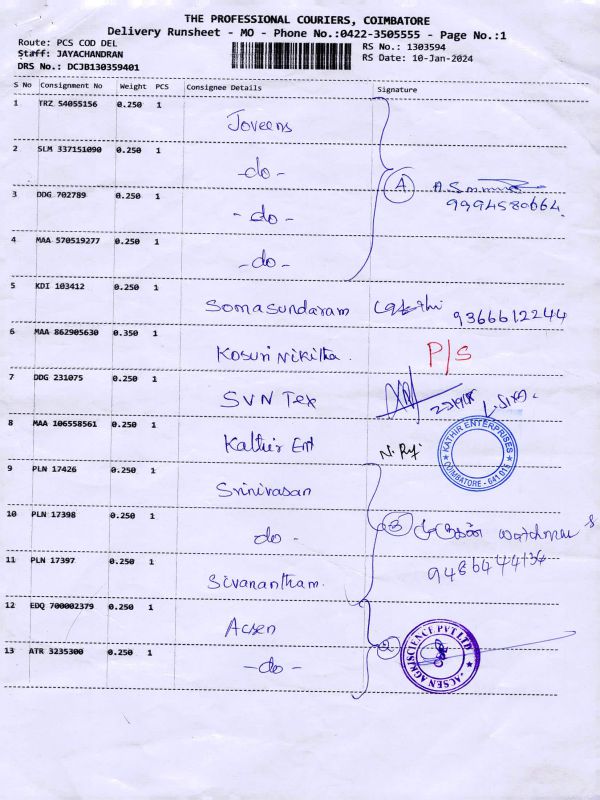 THE PROFESSIONAL COURIERS, COIMBATORE
Delivery Runsheet - MO - Phone No.:0422-3505555 - Page No.:1
Route: PCS COD DEL
RS No.: 1303594
Staff: JAYACHANDRAN
RS Date: 10-Jan-2024
DRS No.: DCJB130359401
S No Consignment No Weight PCS Consignee Details Signature
1 TRZ 54055156 0.250 1
Joveens
2 SLM 337151090 0.250 1
-do-
A
9994580664.
3 DDG 702789 0.250 1
-do-
4 MAA 570519277 0.250 1
-do-
5 KDI 103412 0.250 1
Somasundaram 9366612244
6 MAA 862905630 0.350 1
Kosuri Nikitha. P/S
7 DDG 231075 0.250 1
SVN Tex
8 MAA 106558561 0.250 1
Kathir Ent
KATHIR ENTERPRISES
COIMBATORE - 641 015
9 PLN 17426 0.250 1
Srinivasan
10 PLN 17398 0.250 1
do -
3
11 PLN 17397 0.250 1
Sivanantham.
12 EDQ 700002379 0.250 1
Acsen
2
13 ATR 3235300 0.250 1
-do-
ACSEN AGRISCIENCE PVT LTD